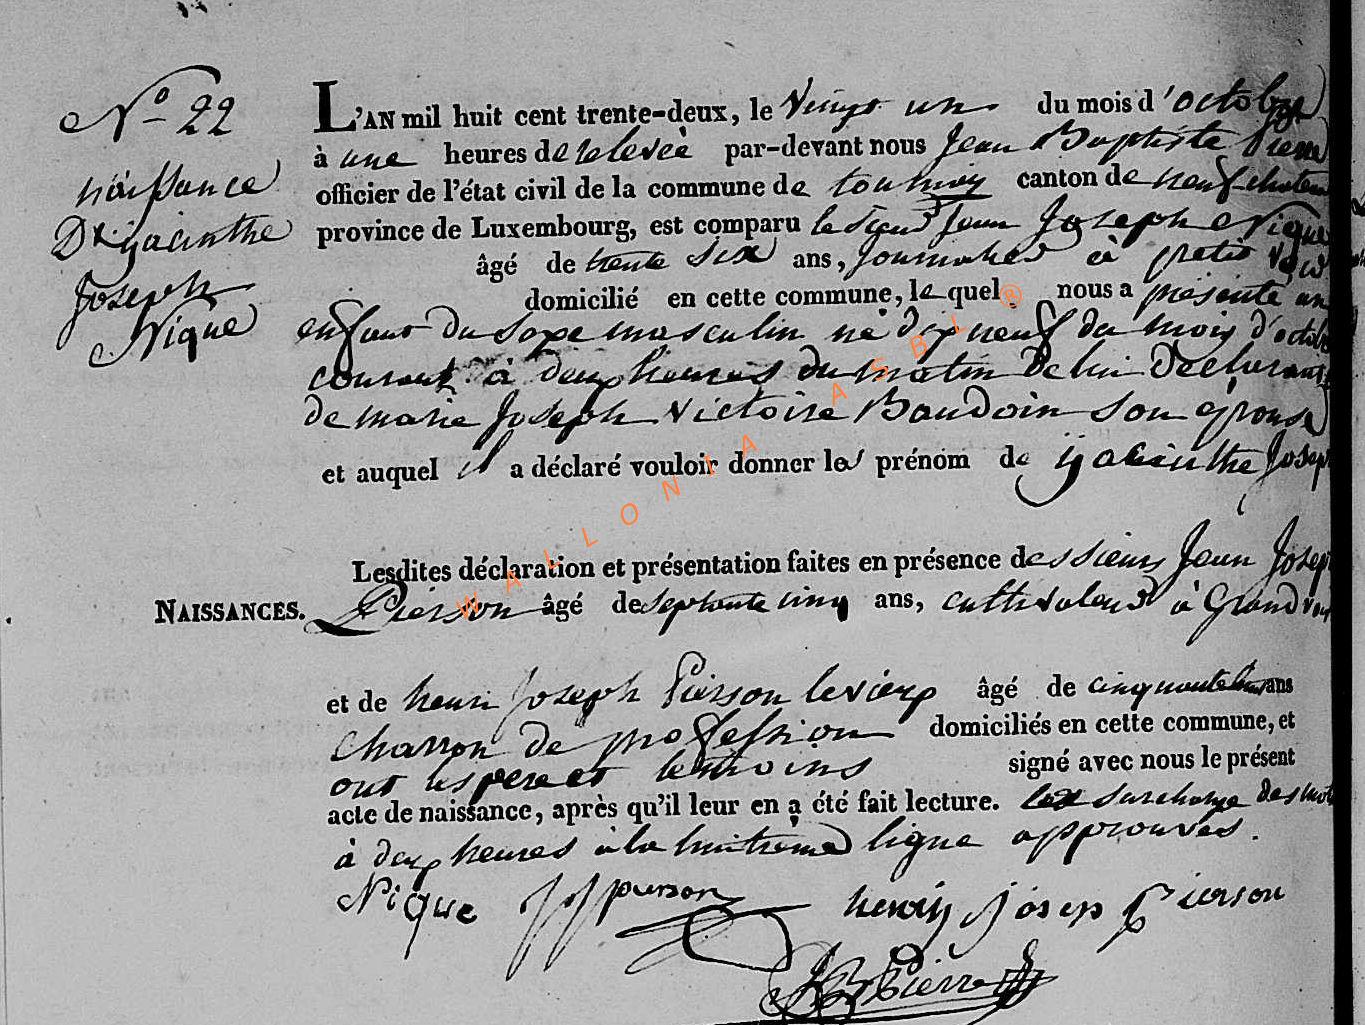 N° 22
naissance
D'hÿacinthe
Joseph
Nique
L'AN mil huit cent trente-deux, le vingt un du mois d'octobre
à une heures de relevée par-devant nous Jean Baptiste Pierre
officier de l'état civil de la commune de tournay canton de neufchateau
province de Luxembourg, est comparu le sieur Jean Joseph Nique
âgé de trente six ans, journalier à petit voir
domicilié en cette commune, lequel nous a présenté un
enfant du sexe masculin né dix neuf du mois d'octobre
courant à deux heures du matin de lui Déclarant
de marie Joseph Victoire Baudoin son épouse
et auquel il a déclaré vouloir donner les prénom de hÿacinthe Joseph
Lesdites déclaration et présentation faites en présence des sieurs Jean Joseph
NAISSANCES. Pierson âgé de septante cinq ans, cultivateur à Grandvoir
et de henri Joseph Pierson le vieux âgé de cinquante ans
charron de profession domiciliés en cette commune, et
ont les pere et temoins signé avec nous le présent
acte de naissance, après qu'il leur en a été fait lecture. surcharge des mots
à deux heures à la huitieme ligne approuvés.
Nique JJPierson henrij Josep Pierson
JB Pierre
WALLONIA ASBL ®